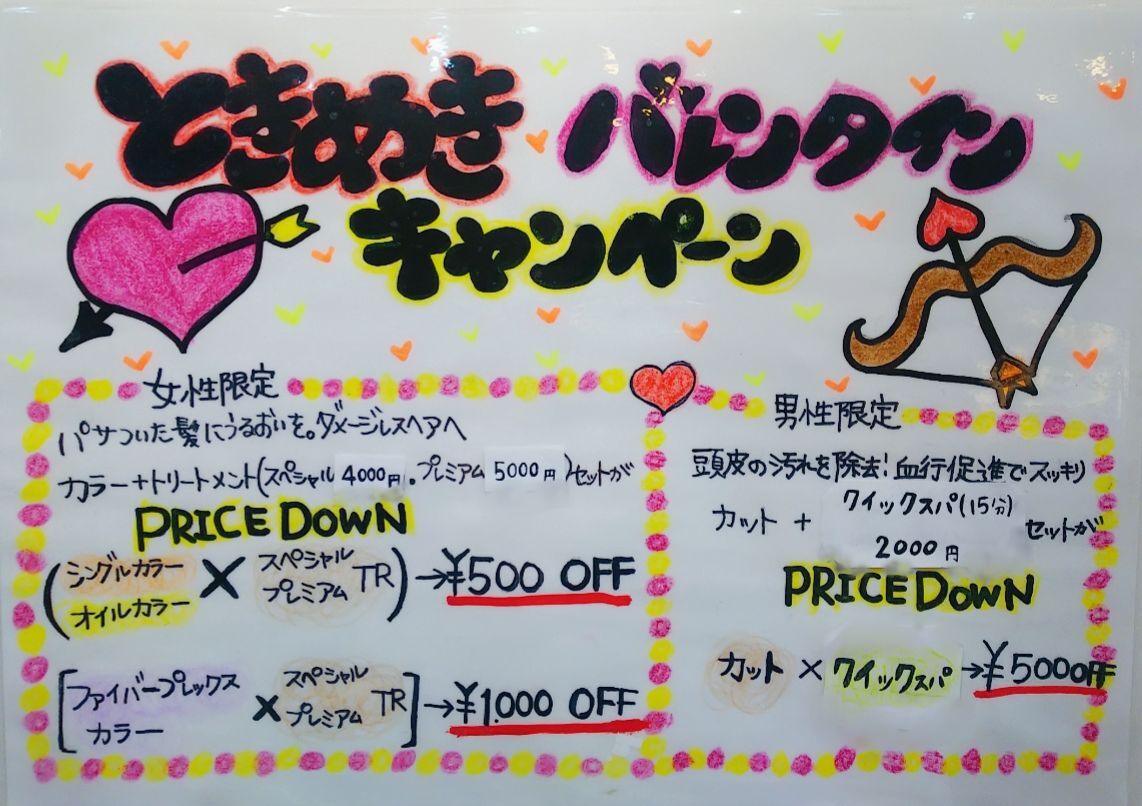 ときめき バレンタイン
キャンペーン
女性限定
パサついた髪にうるおいを。ダメージレスヘアへ
カラー+トリートメント(スペシャル 4000円。プレミアム 5000円)セットが
PRICE DOWN
(シングルカラー オイルカラー × スペシャル プレミアム TR) → ¥500 OFF
[ファイバープレックス カラー × スペシャル プレミアム TR] → ¥1.000 OFF
男性限定
頭皮の汚れを除去!血行促進でスッキリ
カット + クイックスパ(15分) 2000円 セットが
PRICE DOWN
カット × クイックスパ → ¥500 OFF